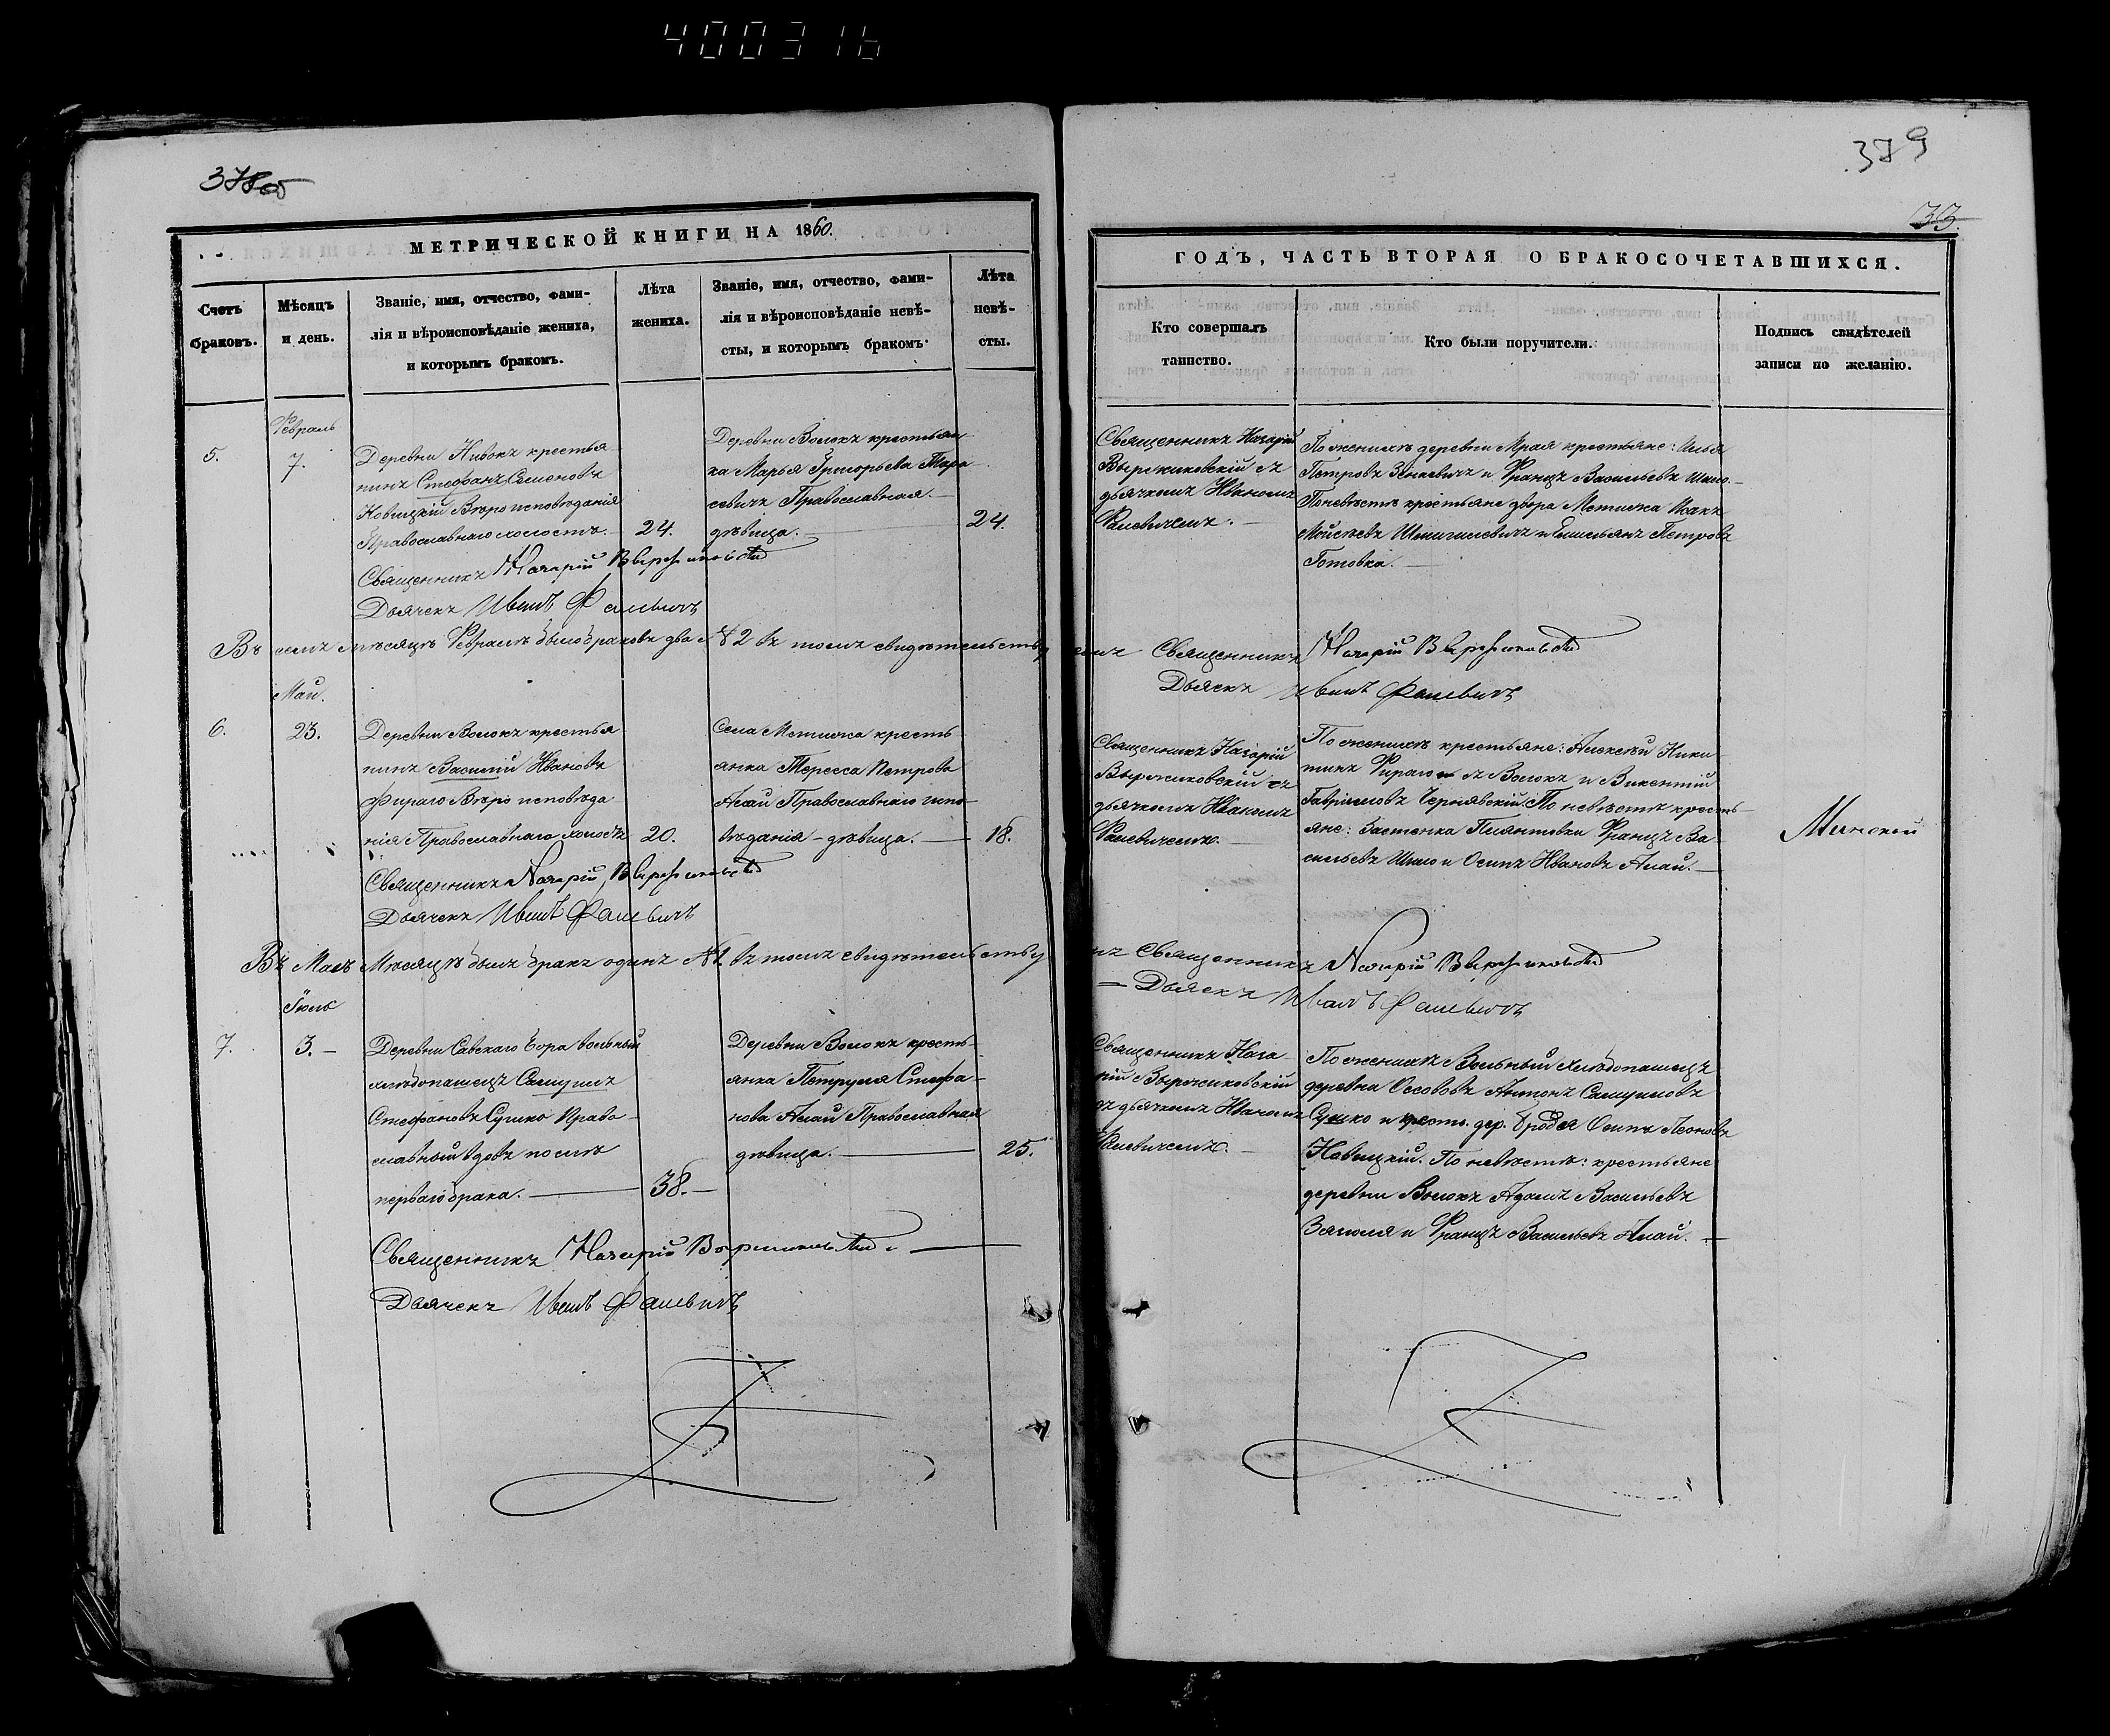 4000316
378об
379
33.
МЕТРИЧЕСКОЙ КНИГИ НА 1860.
ГОДЪ, ЧАСТЬ ВТОРАЯ О БРАКОСОЧЕТАВШИХСЯ.
Счетъ
браковъ.
Мѣсяцъ
и день.
Званіе, имя, отчество, фами-
лія и вѣроисповѣданіе жениха,
и которымъ бракомъ.
Лѣта
жениха.
Званіе, имя, отчество, фами-
лія и вѣроисповѣданіе невѣ-
сты, и которымъ бракомъ.
Лѣта
невѣ-
сты.
Кто совершалъ
таинство.
Кто были поручители.
Подпись свидѣтелей
записи по желанію.
5.
Февраль
7.
Деревни Нивокъ крестья
нинъ Стефанъ Семеновъ
Новицкій Вѣроисповѣданія
Православнаго холостъ.
24.
Деревни Волокъ крестьян
ка Марья Григорьева Тара
севичъ Православная.
дѣвица.
24.
Священникъ Назарій
Выржиковскій съ
дьячкомъ Иваномъ
Фалевичемъ.
По женихѣ деревни Мрая крестьяне: Илья
Петровъ Зенкевичъ и Францъ Васильевъ Шило.
По невѣстѣ крестьяне двора Метична Исакъ
Мойсѣевъ и Емельянъ Петровъ
Готовка.
Священникъ Назарій Выржиковскій
Дьячекъ Иванъ Фалевичъ
Въ семъ мѣсяцѣ Февралѣ было браковъ два № 2 въ томъ свидѣтельству
емъ Священникъ Назарій Выржиковскій
Дьячекъ Иванъ Фалевичъ
6.
Май.
23.
Деревни Волокъ крестья
нинъ Василій Ивановъ
Фираго Вѣроисповѣда
нія Православнаго холостъ
20.
Села Метична кресть
янка Тересса Петрова
Алай Православнаго испо
вѣданія – дѣвица.
18.
Священникъ Назарій
Выржиковскій съ
дьячкомъ Иваномъ
Фалевичемъ.
По женихѣ крестьяне: Алексѣй Ники
тинъ Фираго съ Волокъ и Викентій
Гавріиловъ Чернявскій. По невѣстѣ кресть
яне: Застенка Францъ Ва
сильевъ Шило и Осипъ Ивановъ Алай.
Священникъ Назарій Выржиковскій
Дьячекъ Иванъ Фалевичъ
Въ Маѣ Мѣсяцѣ былъ бракъ одинъ №1. въ томъ свидѣтельству
мъ Священникъ Назарій Выржиковскій
Дьячекъ Иванъ Фалевичъ
7.
Іюль
3.
Деревни Савскаго Бора вольный
хлѣбопашецъ Самуилъ
Стефановъ Сушко Право
славный вдовъ послѣ
перваго брака.
38.
Деревни Волокъ кресть
янка Петруля Стефа
нова Алай Православная
дѣвица.
25.
Священникъ Наза
рій Выржиковскій
съ дьячкомъ Иваномъ
Фалевичемъ.
По женихѣ Вольный хлѣбопашецъ
деревни Оссововъ Антонъ Самуиловъ
Сушко и крест. дер. Бродка Осипъ Леоновъ
Новицкій. По невѣстѣ: крестьяне
деревни Волокъ Адамъ Васильевъ
и Францъ Васильевъ Алай.
Священникъ Назарій Выржиковскій
Дьячекъ Иванъ Фалевичъ